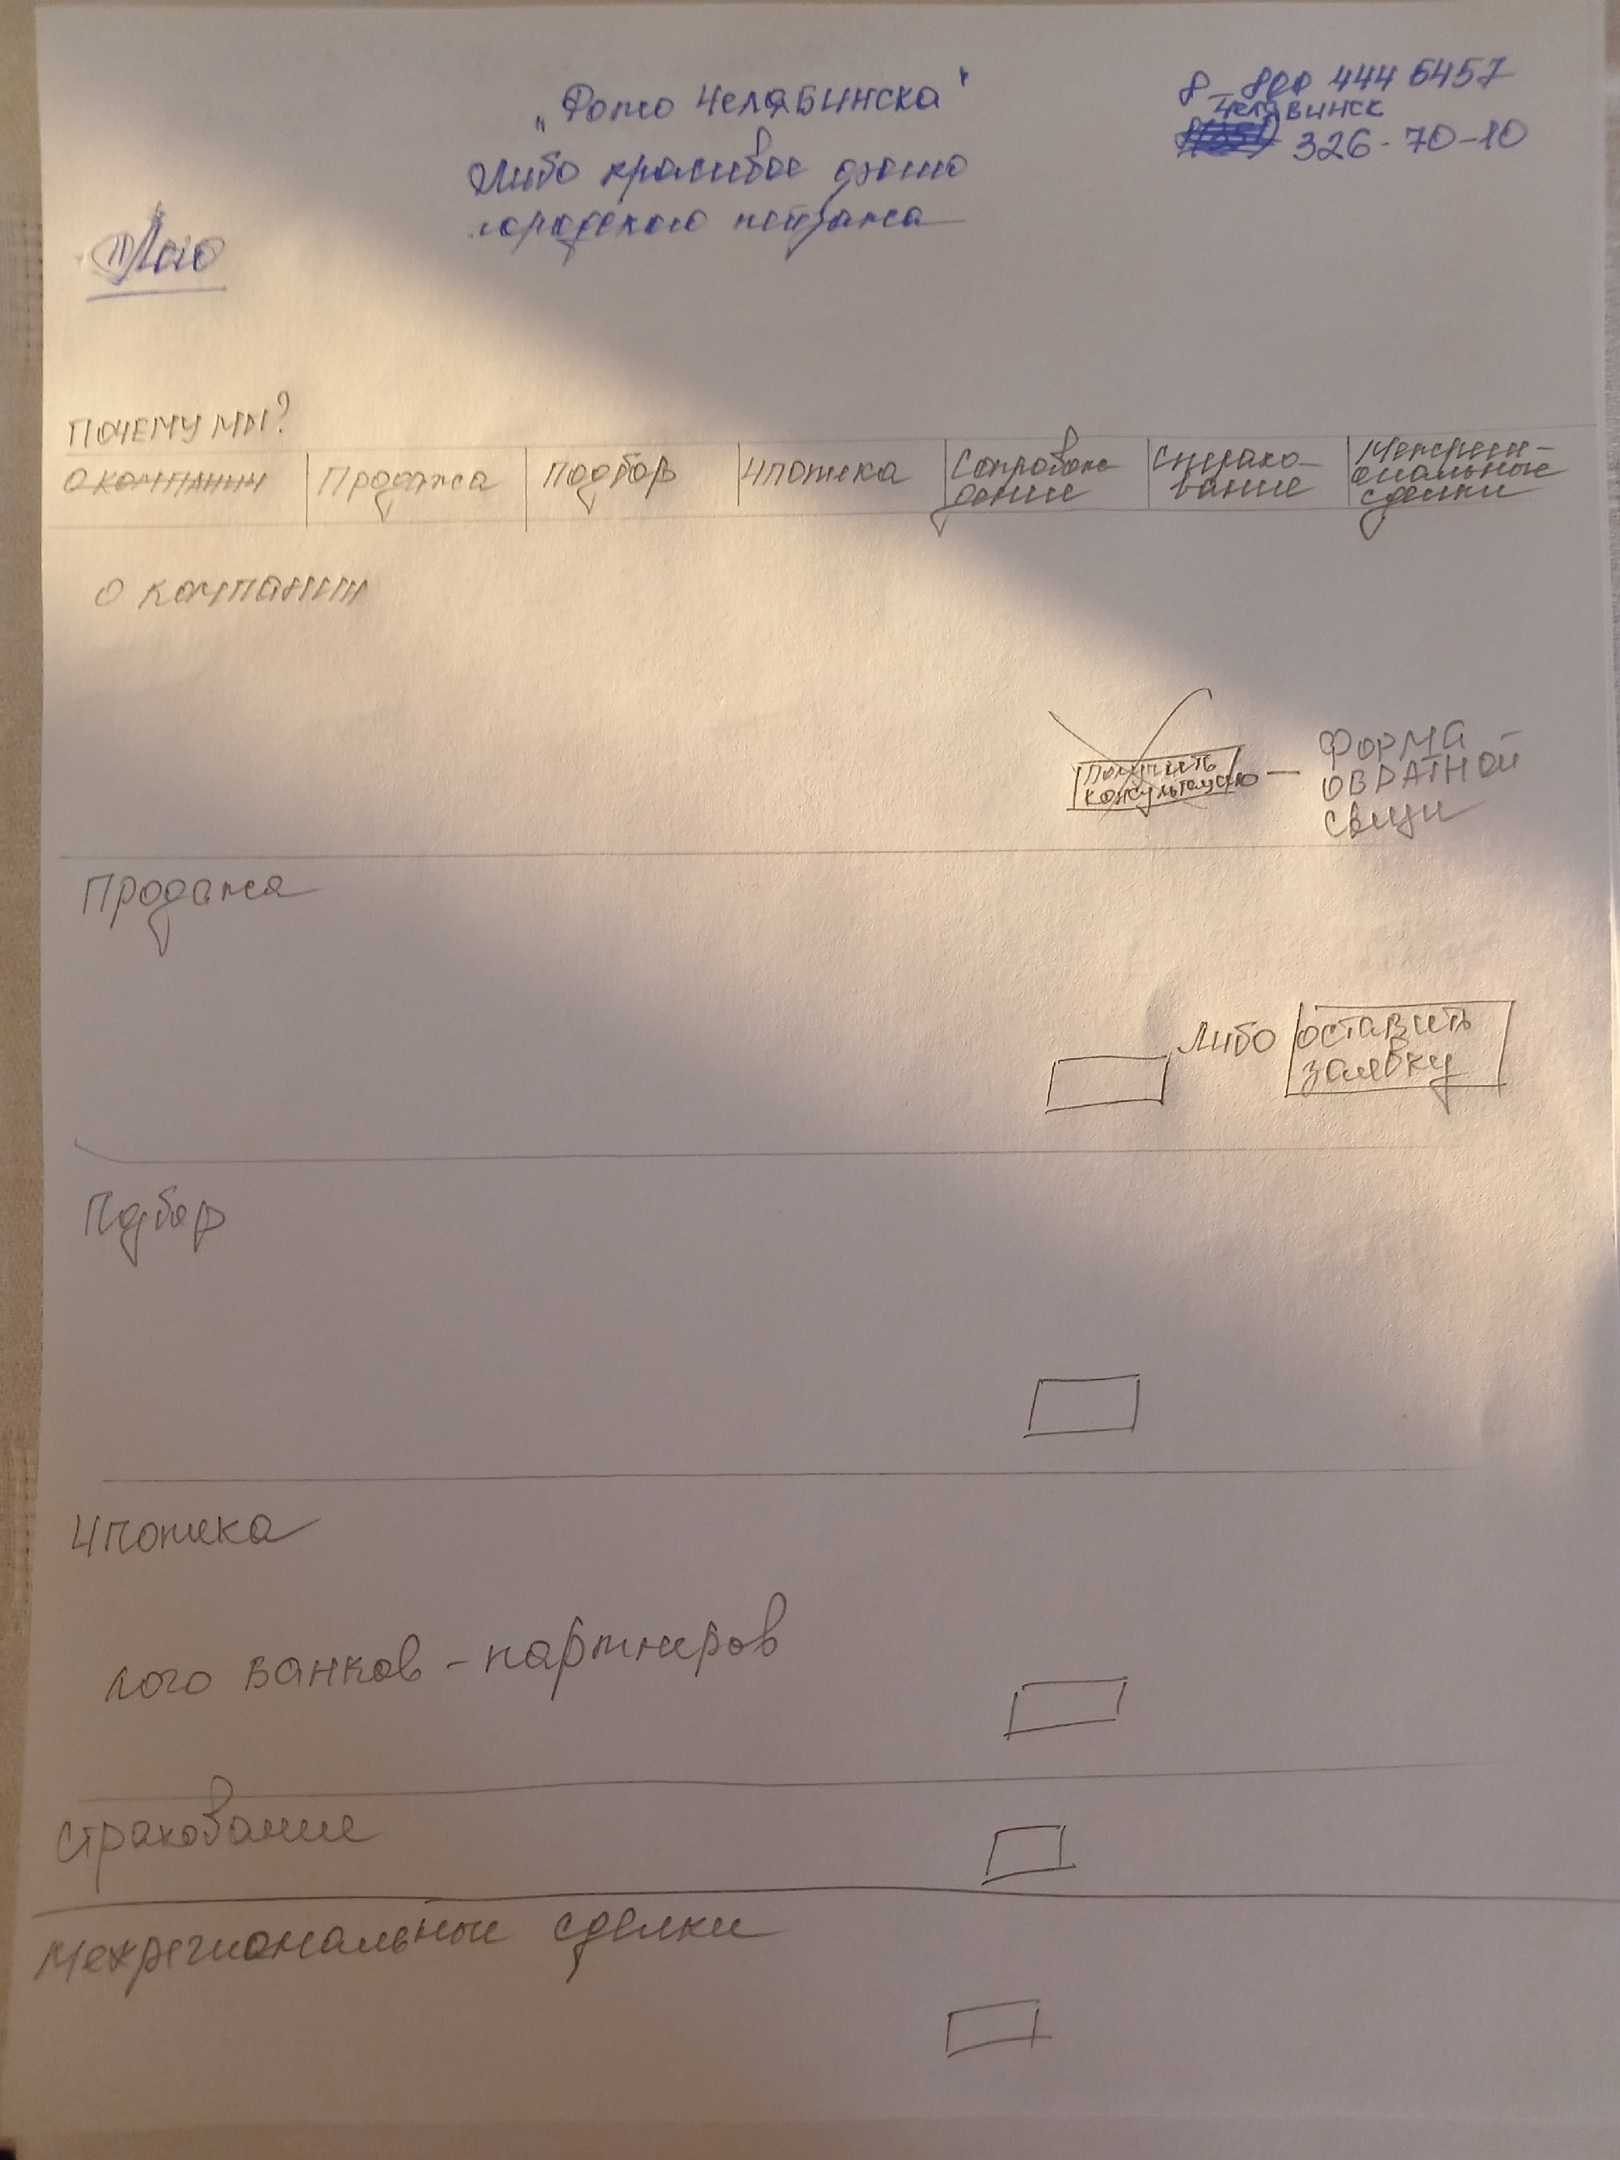 „Фото Челябинска"
Либо красивое фото
городского пейзажа
8-800 444 6457
Челябинск
326-70-10
Лого
ПОЧЕМУ МЫ?
О КОМПАНИИ
Продажа
Подбор
Ипотека
Сопровож
дение
Страхо-
вание
Межреги-
ональные
сделки
О КОМПАНИИ
Получить
консультацию
— ФОРМА
ОБРАТНОЙ
связи
Продажа
либо
оставить
заявку
Подбор
Ипотека
лого банков - партнеров
страхование
Межрегиональные сделки